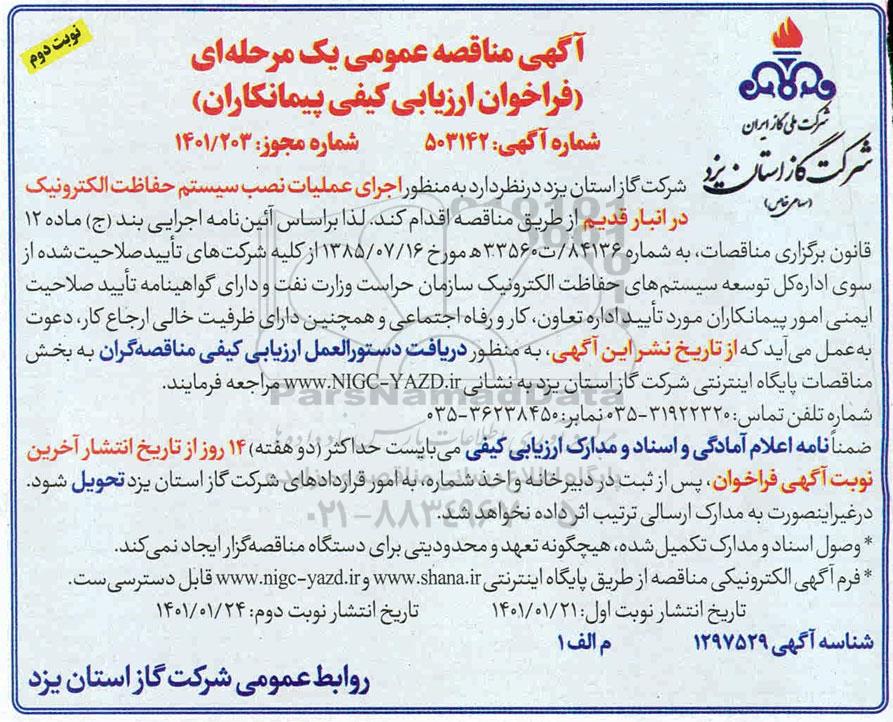 نوبت دوم
آگهی مناقصه عمومی یک مرحله‌ای
(فراخوان ارزیابی کیفی پیمانکاران)
شماره آگهی: ۵۰۳۱۴۲ شماره مجوز: ۱۴۰۱/۲۰۳
شرکت ملی گاز ایران
شرکت گاز استان یزد
(سهامی خاص)
شرکت گاز استان یزد درنظر دارد به منظور اجرای عملیات نصب سیستم حفاظت الکترونیک
در انبار قدیم از طریق مناقصه اقدام کند. لذا براساس آئین‌نامه اجرایی بند (ج) ماده ۱۲
قانون برگزاری مناقصات، به شماره ۸۴۱۳۶/ت۳۳۵۶۰ه مورخ ۱۳۸۵/۰۷/۱۶ از کلیه شرکت‌های تأیید صلاحیت شده از
سوی اداره کل توسعه سیستم‌های حفاظت الکترونیک سازمان حراست وزارت نفت و دارای گواهینامه تأیید صلاحیت
ایمنی امور پیمانکاران مورد تأیید اداره تعاون، کار و رفاه اجتماعی و همچنین دارای ظرفیت خالی ارجاع کار، دعوت
به عمل می‌آید که از تاریخ نشر این آگهی، به منظور دریافت دستورالعمل ارزیابی کیفی مناقصه‌گران به بخش
مناقصات پایگاه اینترنتی شرکت گاز استان یزد به نشانی www.NIGC-YAZD.ir مراجعه فرمایند.
ParsNamadData
شماره تلفن تماس: ۳۱۹۲۲۳۲۰-۰۳۵ نمابر: ۳۶۲۳۸۴۵۰-۰۳۵
ضمناً نامه اعلام آمادگی و اسناد و مدارک ارزیابی کیفی می‌بایست حداکثر (دو هفته) ۱۴ روز از تاریخ انتشار آخرین
نوبت آگهی فراخوان، پس از ثبت در دبیرخانه و اخذ شماره، به امور قراردادهای شرکت گاز استان یزد تحویل شود.
درغیراینصورت به مدارک ارسالی ترتیب اثر داده نخواهد شد.
* وصول اسناد و مدارک تکمیل شده، هیچگونه تعهد و محدودیتی برای دستگاه مناقصه‌گزار ایجاد نمی‌کند.
* فرم آگهی الکترونیکی مناقصه از طریق پایگاه اینترنتی www.shana.ir و www.nigc-yazd.ir قابل دسترسی ست.
تاریخ انتشار نوبت اول: ۱۴۰۱/۰۱/۲۱ تاریخ انتشار نوبت دوم: ۱۴۰۱/۰۱/۲۴
شناسه آگهی ۱۲۹۷۵۲۹ م الف ۱
روابط عمومی شرکت گاز استان یزد